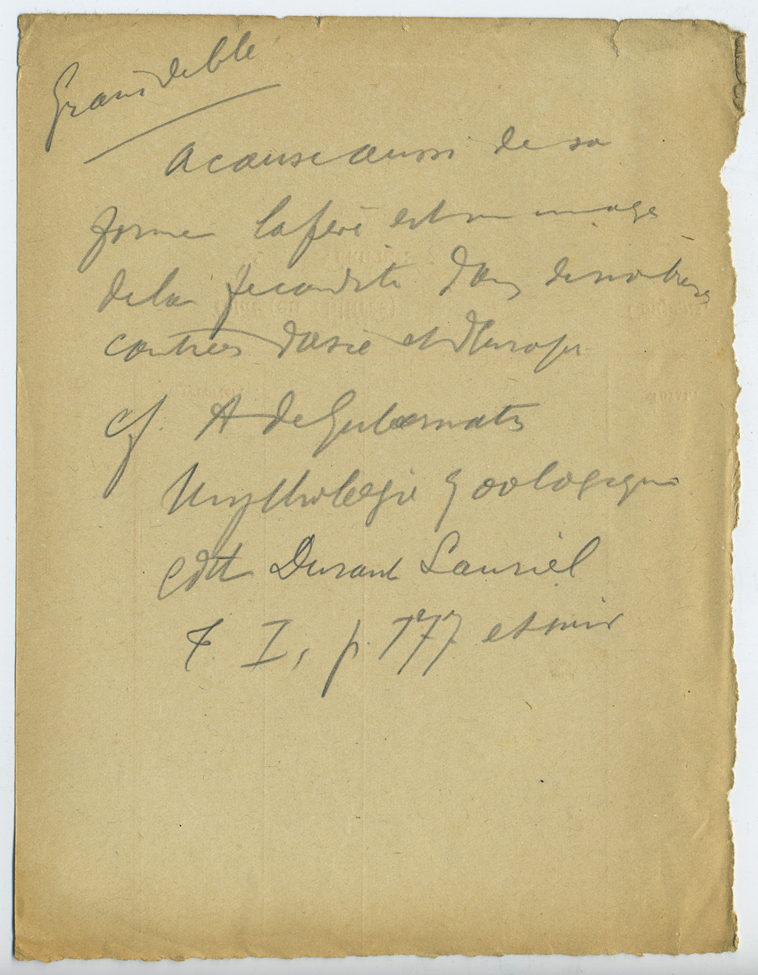 Grain de blé
A cause aussi de sa
forme la fève est une image
de la fécondité dans de nombreuses
contrées d'Asie et d'Europe
cf. A de Gubernatis
Mythologie zoologique
edit Durand Lauriel
t. I, p. 177 et suiv